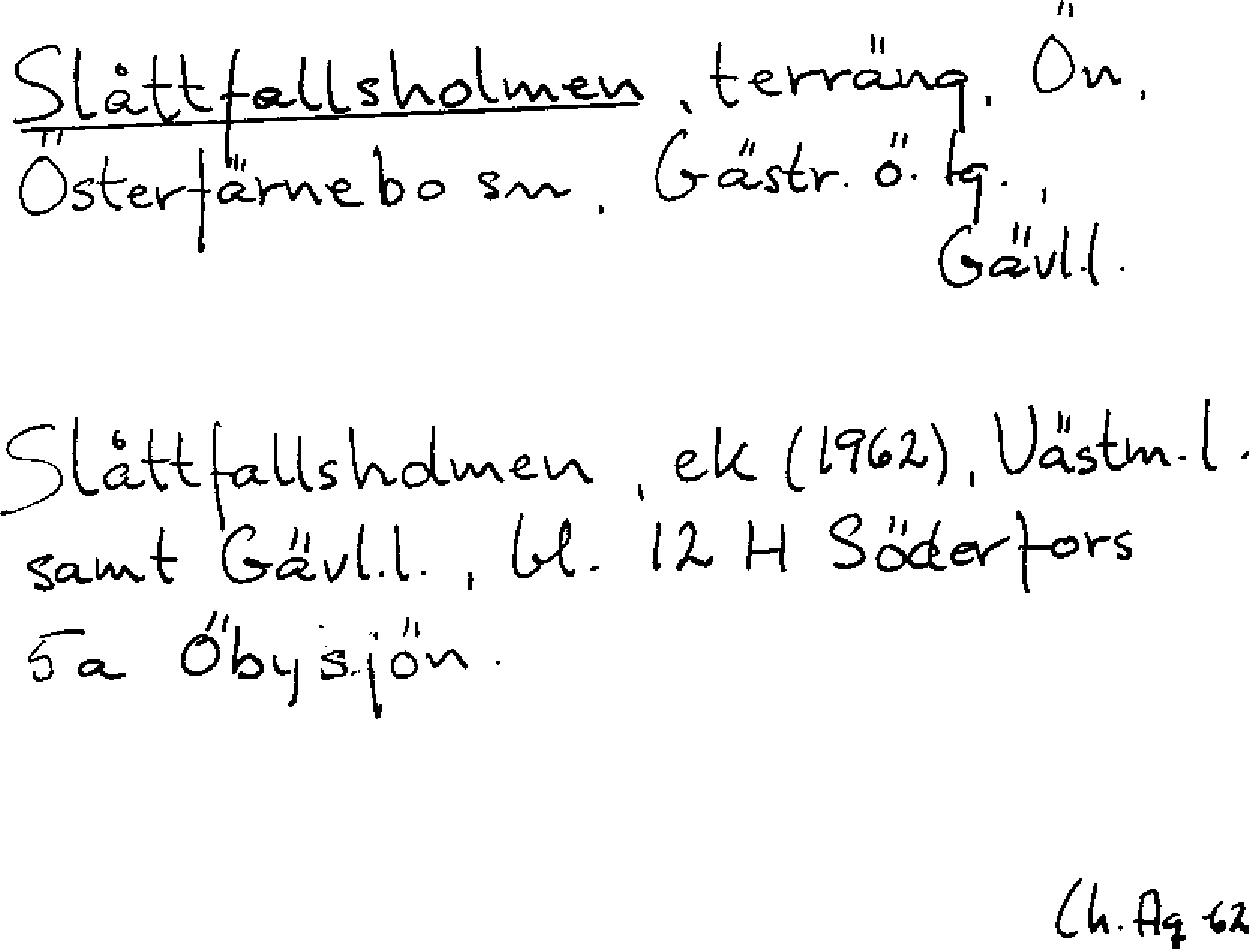 Slåttfallsholmen, terräng, Ön,
Österfärnebo sn, Gästr. ö. tg.,
Gävl.l.
Slåttfallsholmen, ek (1962), Västm. l.
samt Gävl.l., bl. 12 H Söderfors
5a Öbysjön.
Ch. Ag 62